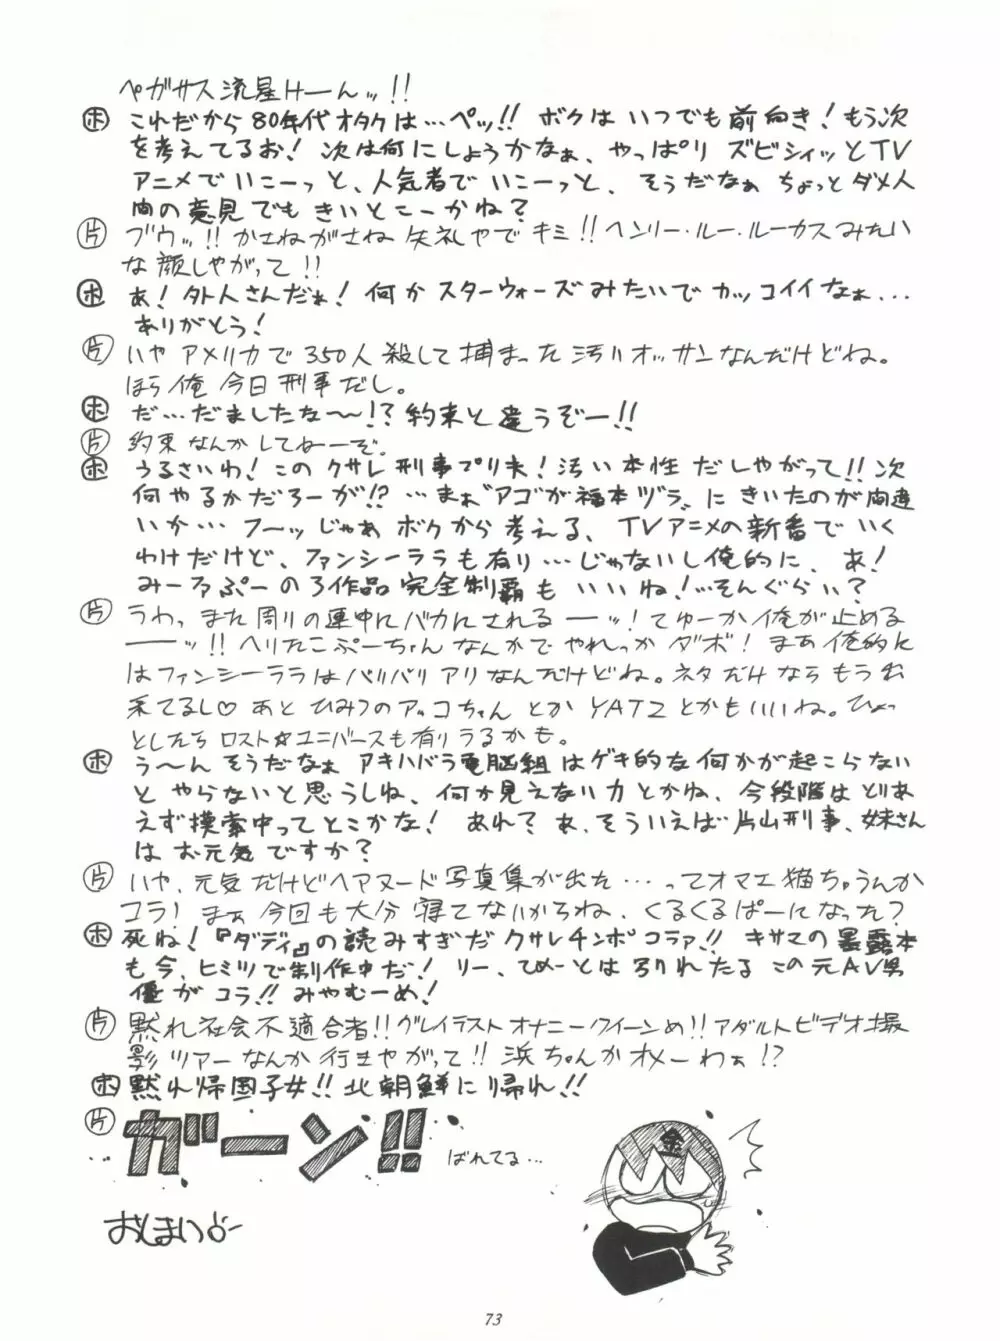 ペガサス流星けーんッ!!
ホ これだから80年代オタクは…ペッ!! ボクはいつでも前向き!もう次
を考えてるお! 次は何にしょうかなぁ、やっぱり ズビシィッとTV
アニメでいこーっと、人気者でいこーっと、そうだなぁ ちょっとダメ人
間の意見でもきいとこーかね?
片 ブウッ!! かさねがさね失礼やでキミ!! ヘンリー・ルー・ルーカスみたい
な顔しやがって!!
ホ あ! 外人さんだぁ! 何かスターウォーズみたいでカッコイイなぁ...
ありがとう!
片 いやアメリカで350人殺して捕まった汚いオッサンなんだけどね。
ほら俺今日刑事だし。
ホ だ…だましたな〜!? 約束と違うぞー!!
片 約束なんかしてねーぞ。
ホ うるさいわ! このクサレ刑事プリ夫! 汚い本性だしやがって!! 次
何やるかだろーが!? …まぁ“アゴが福本ヅラ„にきいたのが間違
いか… フ〜ッじゃあボクから考える、TVアニメの新番でいく
わけだけど、ファンシーララも有り…じゃないし俺的に、あ!
みーファぷーの3作品完全制覇もいいね!…そんぐらい?
片 うわっまた周りの連中にバカにされるーーッ! てゆーか俺が止める
ーーッ!! ヘリたこぷーちゃんなんかでやれっかダボ! まあ俺的に
はファンシーララはバリバリアリなんだけどね。ネタだけならもう出
来てるし♡ あとひみつのアッコちゃんとかYATZとかもいいね。ひょっ
としたらロスト☆ユニバースも有りうるかも。
ホ う〜んそうだなぁ アキハバラ電脳組はゲキ的な何かが起こらない
とやらないと思うしね、何か見えない力とかね、今段階はとりあ
えず模索中ってとこかな! あれ? あ、そういえば片山刑事、妹さん
はお元気ですか?
片 いや、元気だけどヘアヌード写真集が出た…ってオマエ猫ちゃうんか
コラ! まぁ今回も大分寝てないからね、くるくるぱーになった?
ホ 死ね!『ダディ』の読みすぎだクサレチンポコラァ!! キサマの暴露本
も今、ヒミツで制作中だ! リー、てめーとは別れたる この元AV男
優がコラ!! みやむーめ!
片 黙れ社会不適合者!! グレイテストオナニークイーンめ!! アダルトビデオ撮
影ツアーなんか行きやがって!! 浜ちゃんかオメーわぁ!?
ホ 黙れ帰国子女!! 北朝鮮に帰れ!!
片 ガーン!! ばれてる…
金
おしまい
73